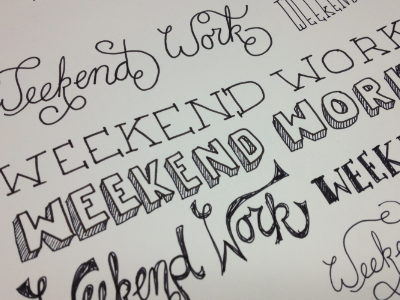 WEEKEND
Weekend Work
WEEKEND WORK
WEEKEND WORK
Weekend Work
WEEK
Weeke